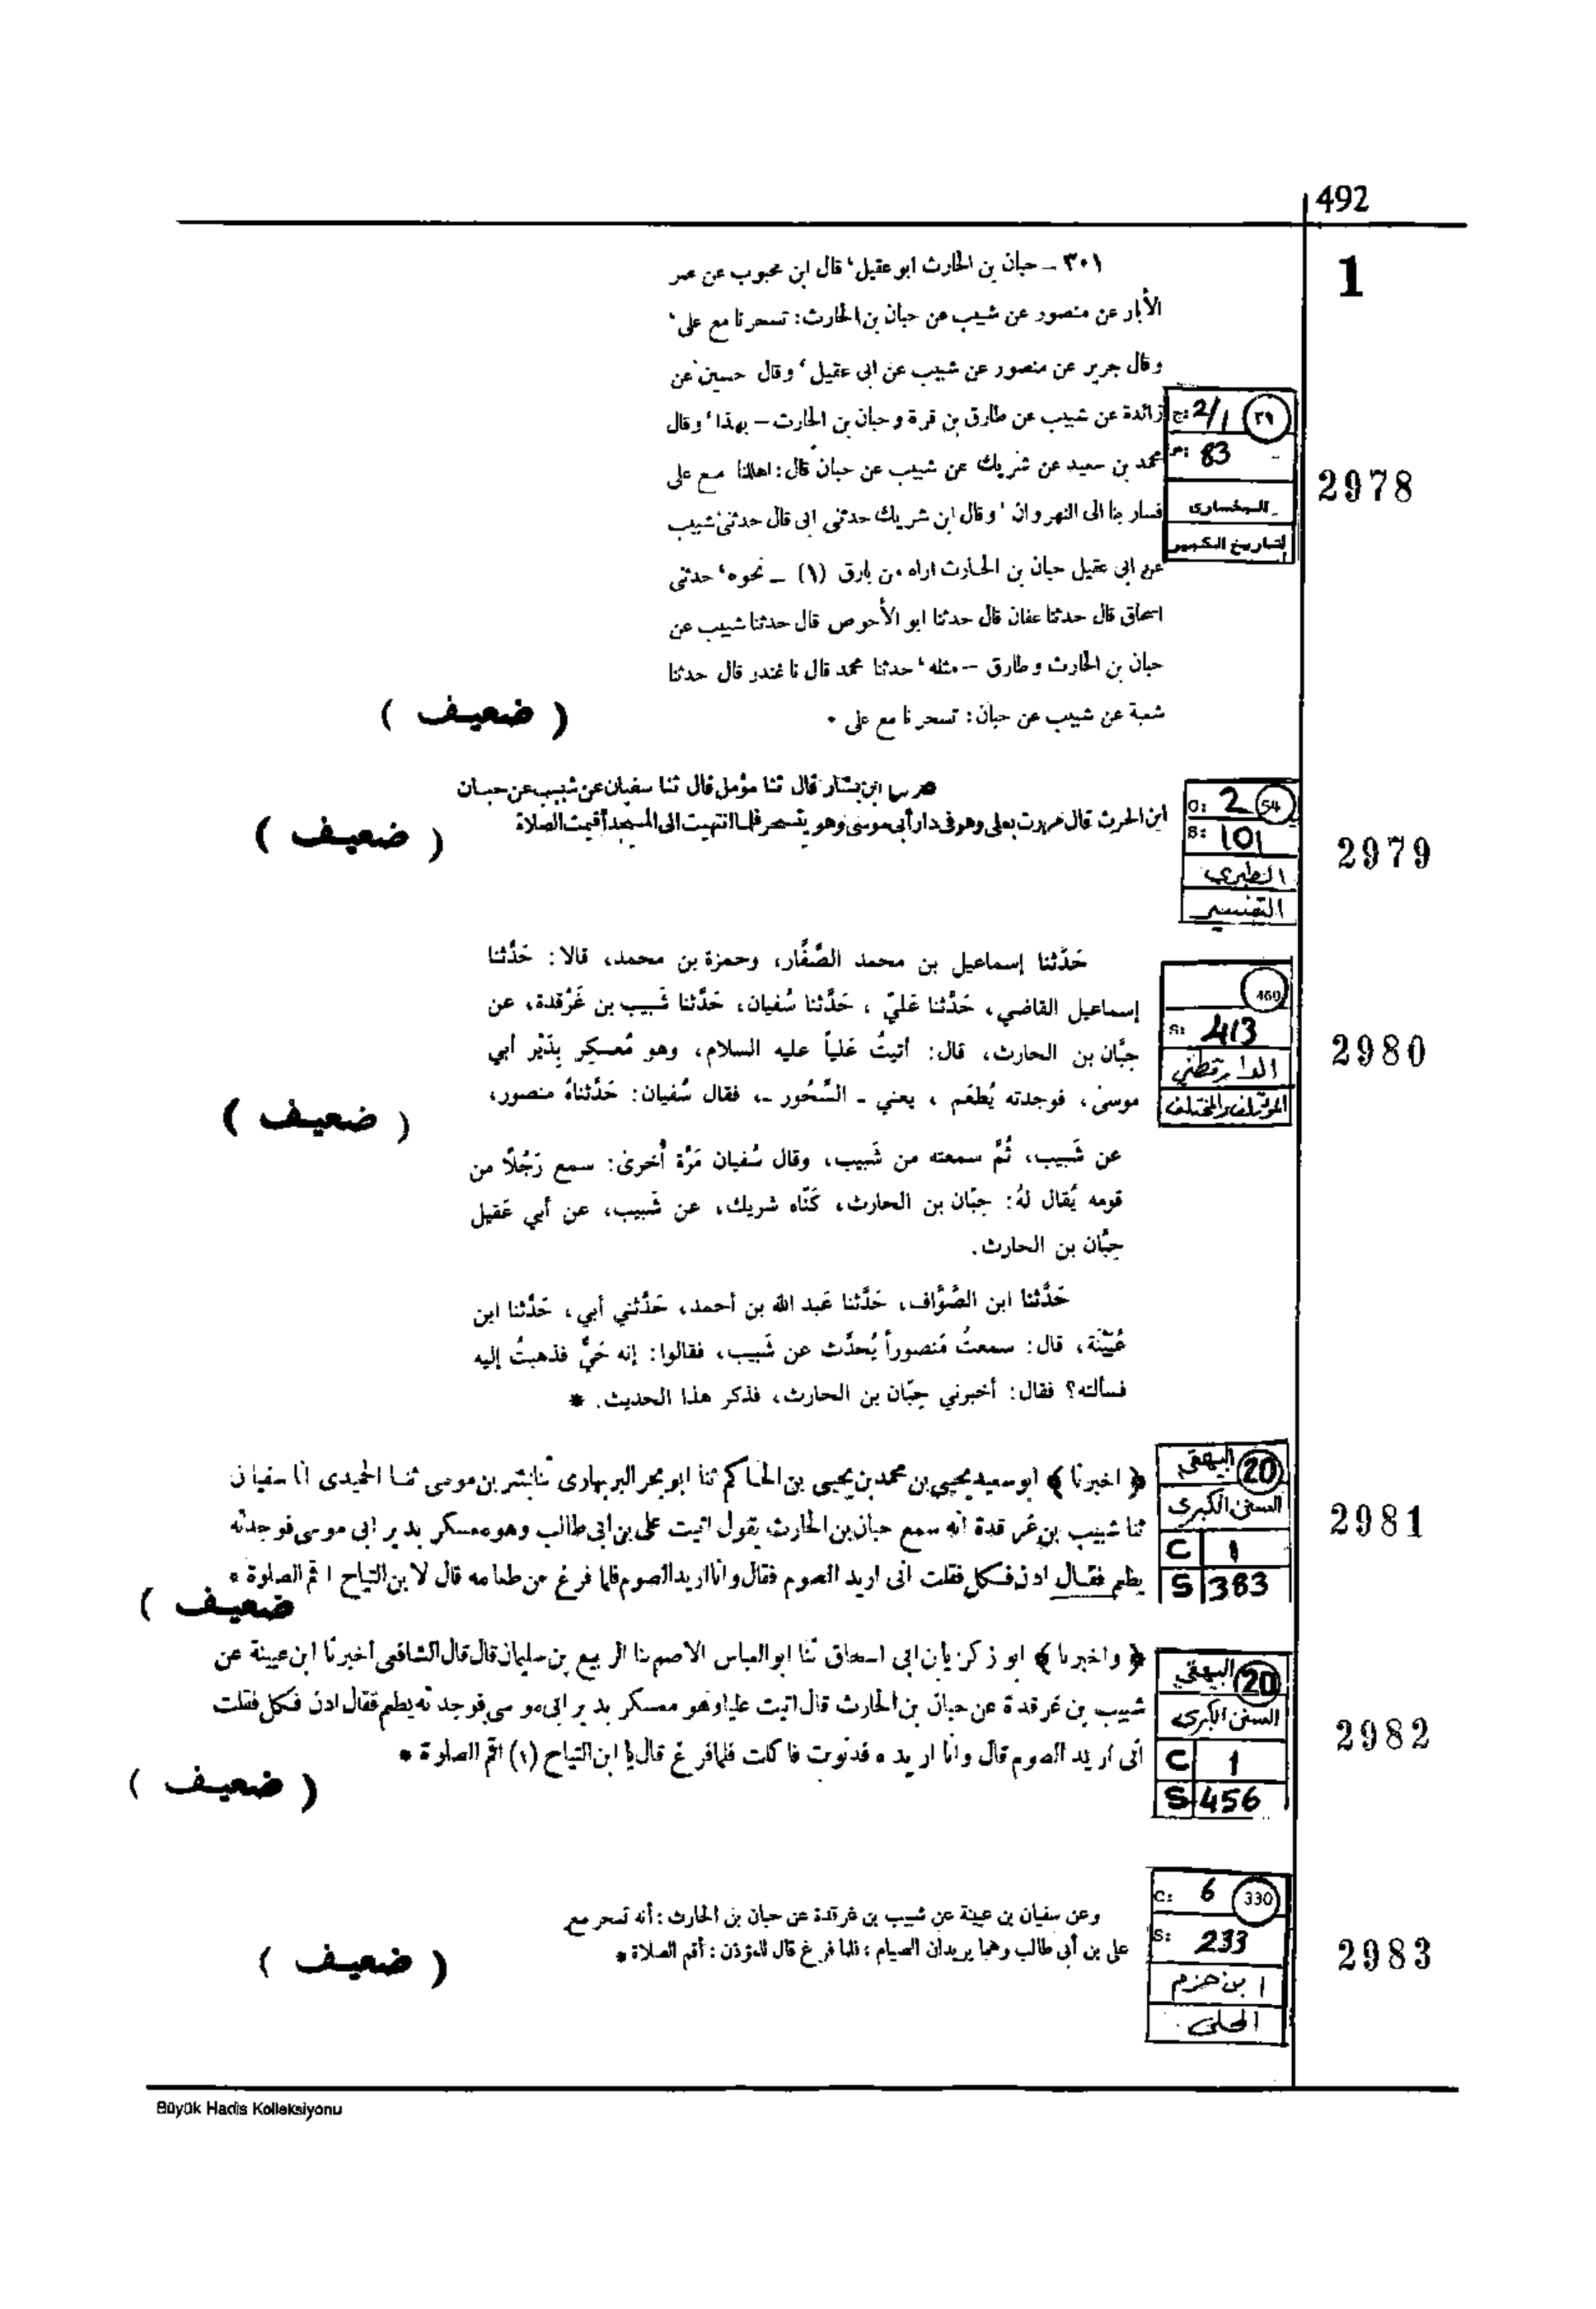 492
1
٣٠١ - حبان بن الحارث ابو عقيل، قال ابن محبوب عن عمر
الأبار عن منصور عن شبيب عن حبان بن الحارث: تسحرنا مع على،
وقال جرير عن منصور عن شبيب عن ابى عقيل، وقال حسين عن
زائدة عن شبيب عن طارق بن قرة وحبان بن الحارث - بهذا، وقال
محمد بن سعيد عن شريك عن شبيب عن حبان قال: اهللنا مع على
فسار بنا الى النهروان، وقال ابن شريك حدثنى ابى قال حدثنى شبيب
عن ابى عقيل حبان بن الحارث اراه من بارق (١) - نحوه، حدثنى
اسحاق قال حدثنا عفان قال حدثنا ابو الأحوص قال حدثنا شبيب عن
حبان بن الحارث وطارق - مثله، حدثنا محمد قال نا غندر قال حدثنا
شعبة عن شبيب عن حبان: تسحرنا مع على .
( ضعيف )
٣٩ ج: 2/1
ص: 83
البخارى
التاريخ الكبير
2978
ابن بشار قال ثنا مؤمل قال ثنا سفيان عن شبيب عن حبان
ابن الحرث قال مررت بعلى وهو فى دار أبى موسى وهو يتسحر فلما انتهيت الى المسجد أقيمت الصلاة
( ضعيف )
C: 2 54
S: 101
الطبري
التفسير
2979
حَدَّثنا إسماعيل بن محمد الصَّفَّار، وحمزة بن محمد، قالا: حَدَّثنا
إسماعيل القاضي، حَدَّثنا عَليّ ، حَدَّثنا سُفيان، حَدَّثنا شَبيب بن غَرْقدة، عن
حِبَّان بن الحارث، قال: أتيتُ عَلياً عليه السلام، وهو مُعسكِر بِدَيْر أبي
موسىٰ، فوجدته يُطعَم ، يعني ـ السَّحُور ـ، فقال سُفيان: حَدَّثناهُ منصور،
عن شَبيب، ثُمَّ سمعته من شَبيب، وقال سُفيان مَرَّة أُخرىٰ: سمع رَجُلاً من
قومه يُقال لهُ: حِبّان بن الحارث، كَنّاه شريك، عن شَبيب، عن أبي عَقيل
حِبَّان بن الحارث.
حَدَّثنا ابن الصَّوَّاف، حَدَّثنا عَبد الله بن أحمد، حَدَّثني أبي، حَدَّثنا ابن
عُيَيْنَة، قال: سمعتُ مَنصوراً يُحدِّث عن شَبيب، فقالوا: إنه حَيٌّ فذهبتُ إليه
فسألته؟ فقال: أخبرني حِبّان بن الحارث، فذكر هذا الحديث. *
( ضعيف )
460
S: 413
الدارقطني
المؤتلف والمختلف
2980
﴿ اخبرنا ﴾ ابو سعيد يحيى بن محمد بن يحيى بن الحاكم ثنا ابو بحر البربهارى ثنا بشر بن موسى ثنا الحميدى انا سفيان
ثنا شبيب بن غرقدة انه سمع حبان بن الحارث يقول اتيت على بن ابى طالب وهو معسكر بدير ابى موسى فوجدته
يطعم فقال ادن فكل فقلت انى اريد الصوم فقال وانا اريد الصوم فلما فرغ من طعامه قال لابن التياح اقم الصلوة *
ضعيف )
البيهقي 20
السنن الكبرى
C 1
S 383
2981
﴿ واخبرنا ﴾ ابو زكريا بن ابى اسحاق ثنا ابو العباس الاصم نا الربيع بن سليمان قال قال الشافعى اخبرنا ابن عيينة عن
شبيب بن غرقدة عن حبان بن الحارث قال اتيت عليا وهو معسكر بدير ابى موسى فوجدته يطعم فقال ادن فكل فقلت
انى اريد الصوم قال وانا اريده فدنوت فاكلت فلما فرغ قال يا ابن التياح (١) اقم الصلوة *
( ضعيف )
البيهقي 20
السنن الكبرى
C 1
S 456
2982
وعن سفيان بن عيينة عن شبيب بن غرقدة عن حبان بن الحارث : أنه تسحر مع
على بن أبى طالب وهما يريدان الصيام ، فلما فرغ قال للمؤذن : أقم الصلاة *
( ضعيف )
C: 6 330
S: 233
ابن حزم
المحلى
2983
Büyük Hadis Kolleksiyonu